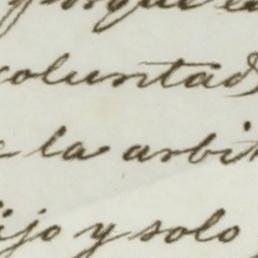 porque la
voluntad
e la arbit
ijo y solo